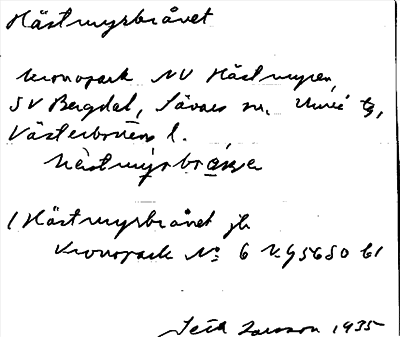 Hästmyrbrånet
Kronopark NV Hästmyren,
SV Bergdal, Sävars sn. Umeå tg,
Västerbottens l.
(Hästmyrbrånet jb
Kronopark No 6 Kg 5680 61
Larsson 1935